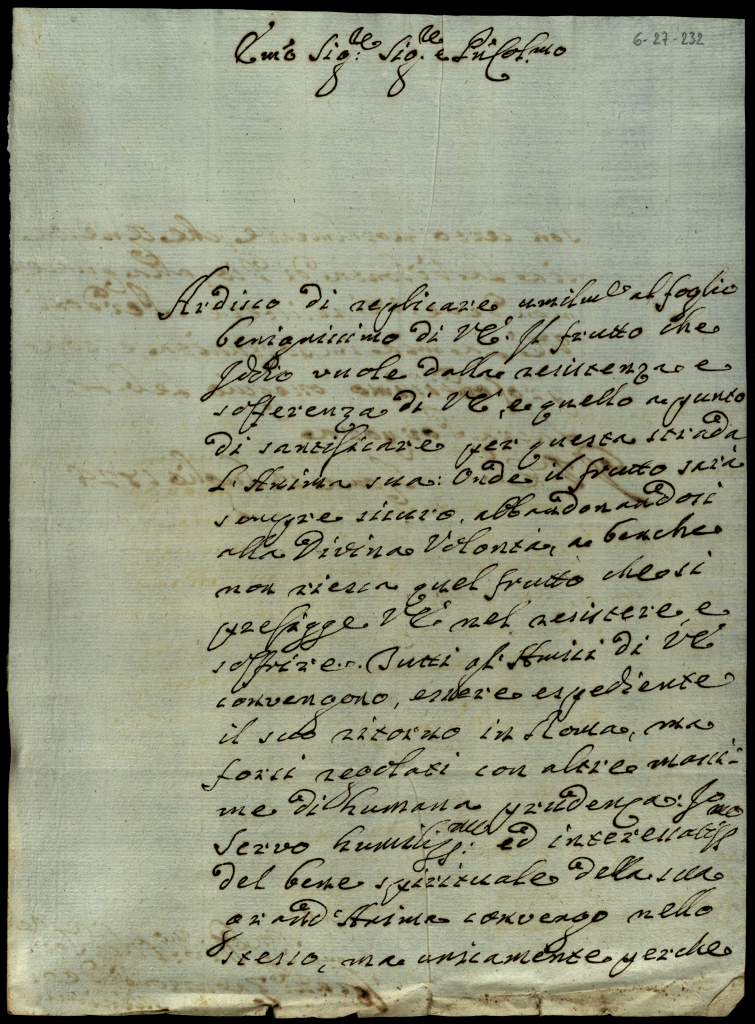 6-27-232
Emo Sig:re Sig:re e Pne Col:mo
Ardisco di replicare umilme al foglio
benignissimo di VE: Il frutto che
Iddio vuole dalla resistenza e
sofferenza di VE, e quello apunto
di santificare per questa strada
L'Anima sua: Onde il frutto sarà
sempre sicuro, abbandonandosi
alla Divina Volontà, a benche
non riesca quel frutto che si
prefigge VE nel resistere, e
soffrire. Tutti gl'Amici di VE
convengono, essere espediente
il suo ritorno in Roma, ma
forsi regolati con altre massi-
me di humana prudenza: Io
servo humiliss:mo ed interessatissmo
del bene spirituale della sua
grand'Anima convengo nello
stesso, ma unicamente perche